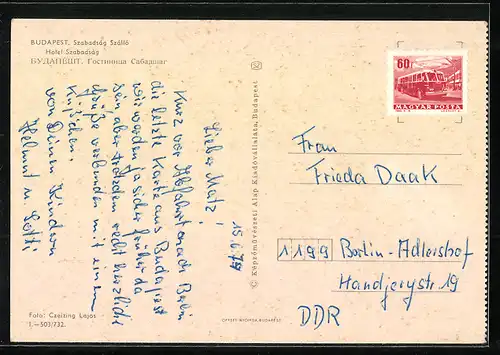 BUDAPEST, Szabadság Szálló
Hotel Szabadság
БУДАПЕШТ. Гостиница Сабадшаг
15.6.74
Kurz vor Abfahrt nach Berlin
die letzte Karte aus Budapest
wir werden ja sicher früher da
sein aber trotzdem recht herzliche
Grüße verbunden mit einem
Küßchen.
von Deinen Kindern
Helmut u. Lotti
Foto: Czeizing Lajos
1.—503/732.
© Képzőművészeti Alap Kiadóvállalata, Budapest
OFFSET-NYOMDA, BUDAPEST
60
MAGYAR POSTA
Frau
Frieda Daak
1199 Berlin-Adlershof
Handjerystr 19
DDR